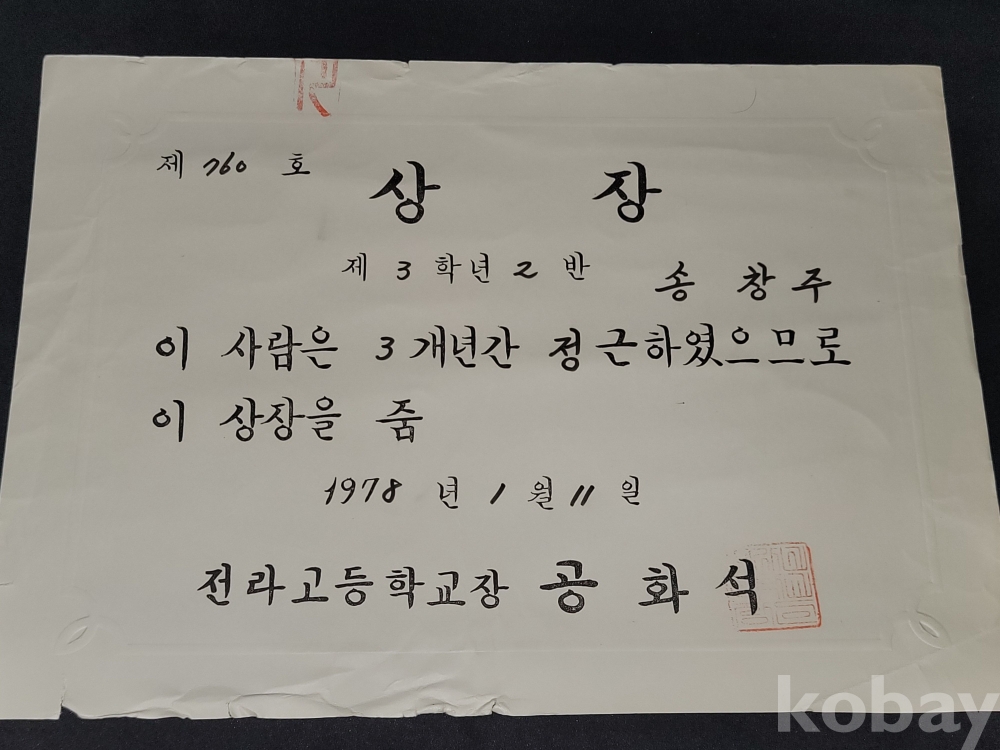 제 760 호
상 장
제 3 학년 2 반 송 창 주
이 사람은 3 개년간 정근하였으므로
이 상장을 줌
1978 년 1 월 11 일
전라고등학교장 공 화 석
kobay